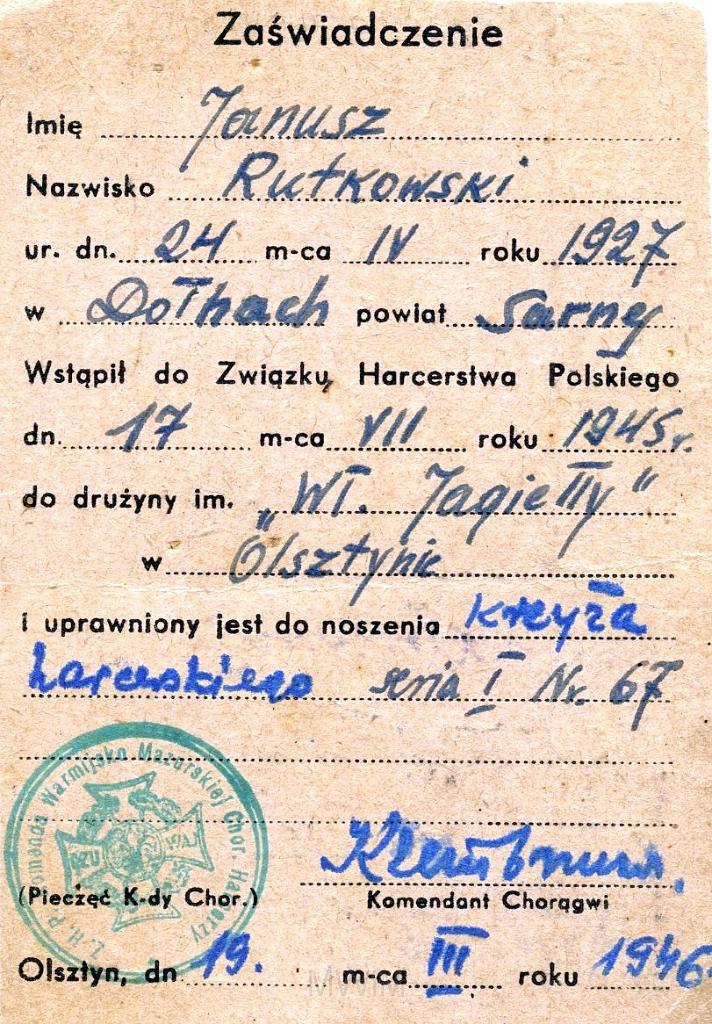 Zaświadczenie
Imię Janusz
Nazwisko Rutkowski
ur. dn. 24 m-ca IV roku 1927
w Dołhach powiat Sarny
Wstąpił do Związku Harcerstwa Polskiego
dn. 17 m-ca VII roku 1945 r.
do drużyny im. „Wł. Jagiełły"
w Olsztynie
i uprawniony jest do noszenia krzyża
harcerskiego seria I Nr. 67
Z. H. P. Komenda Warmijsko Mazurskiej Chor. Harcerzy
CZUWAJ
(Pieczęć K-dy Chor.)
Komendant Chorągwi
Olsztyn, dn 19. m-ca III roku 1946